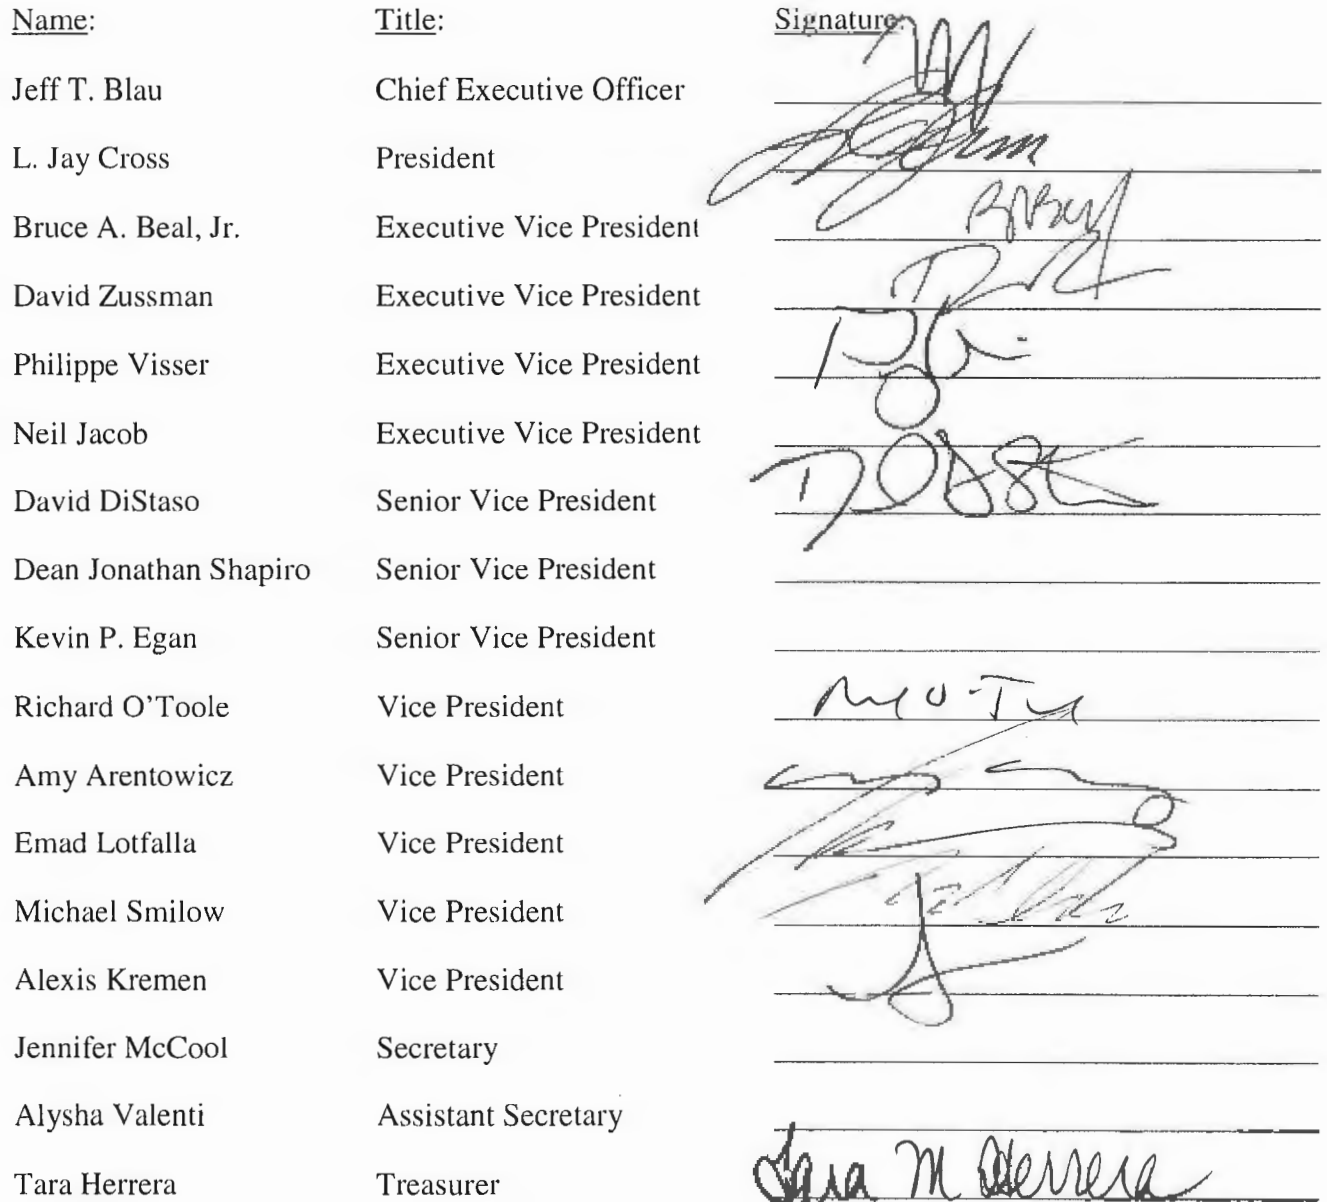 Name: Title: Signature:
Jeff T. Blau Chief Executive Officer
L. Jay Cross President
Bruce A. Beal, Jr. Executive Vice President
David Zussman Executive Vice President
Philippe Visser Executive Vice President
Neil Jacob Executive Vice President
David DiStaso Senior Vice President
Dean Jonathan Shapiro Senior Vice President
Kevin P. Egan Senior Vice President
Richard O'Toole Vice President
Amy Arentowicz Vice President
Emad Lotfalla Vice President
Michael Smilow Vice President
Alexis Kremen Vice President
Jennifer McCool Secretary
Alysha Valenti Assistant Secretary
Tara Herrera Treasurer Tara M Herrera